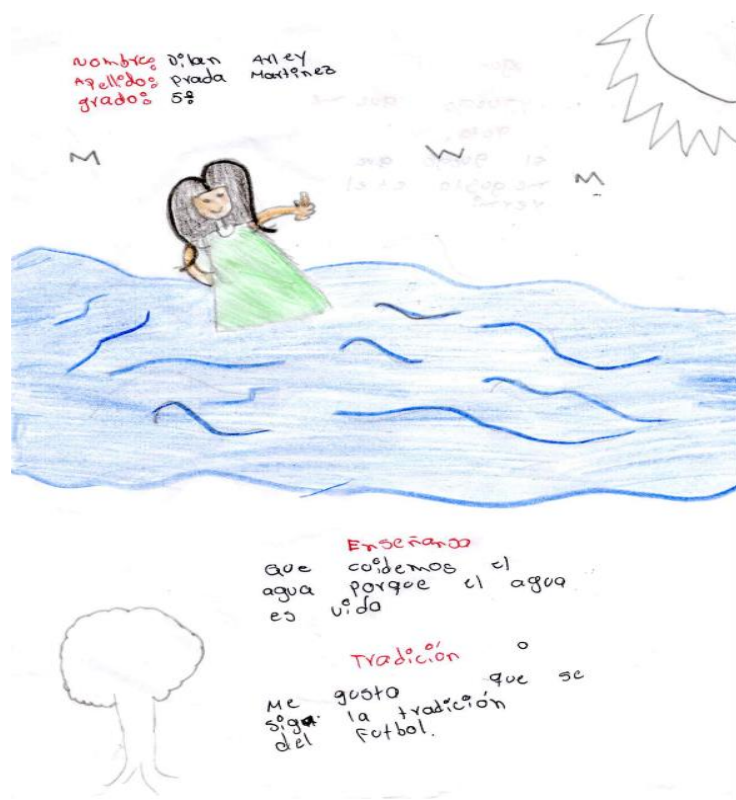 Nombre: Dilan Arley
Apellido: Prada Martinez
grado: 5º
Enseñansa
Que coidemos el
agua porque el agua
es vida
Tradición
Me gusta que se
siga la tradición
del Futbol.